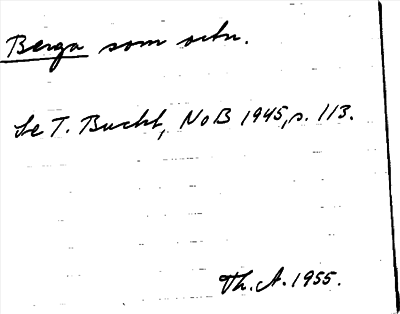 Berga som ortn.
Se T. Bucht, NoB 1945, s. 113.
Th. A. 1955.